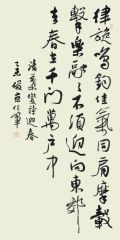 律旋鴻鈞佳氣同肩摩轂
擊樂融々不須迎向東郊
去春在千門萬户中
清葉燮詩迎春